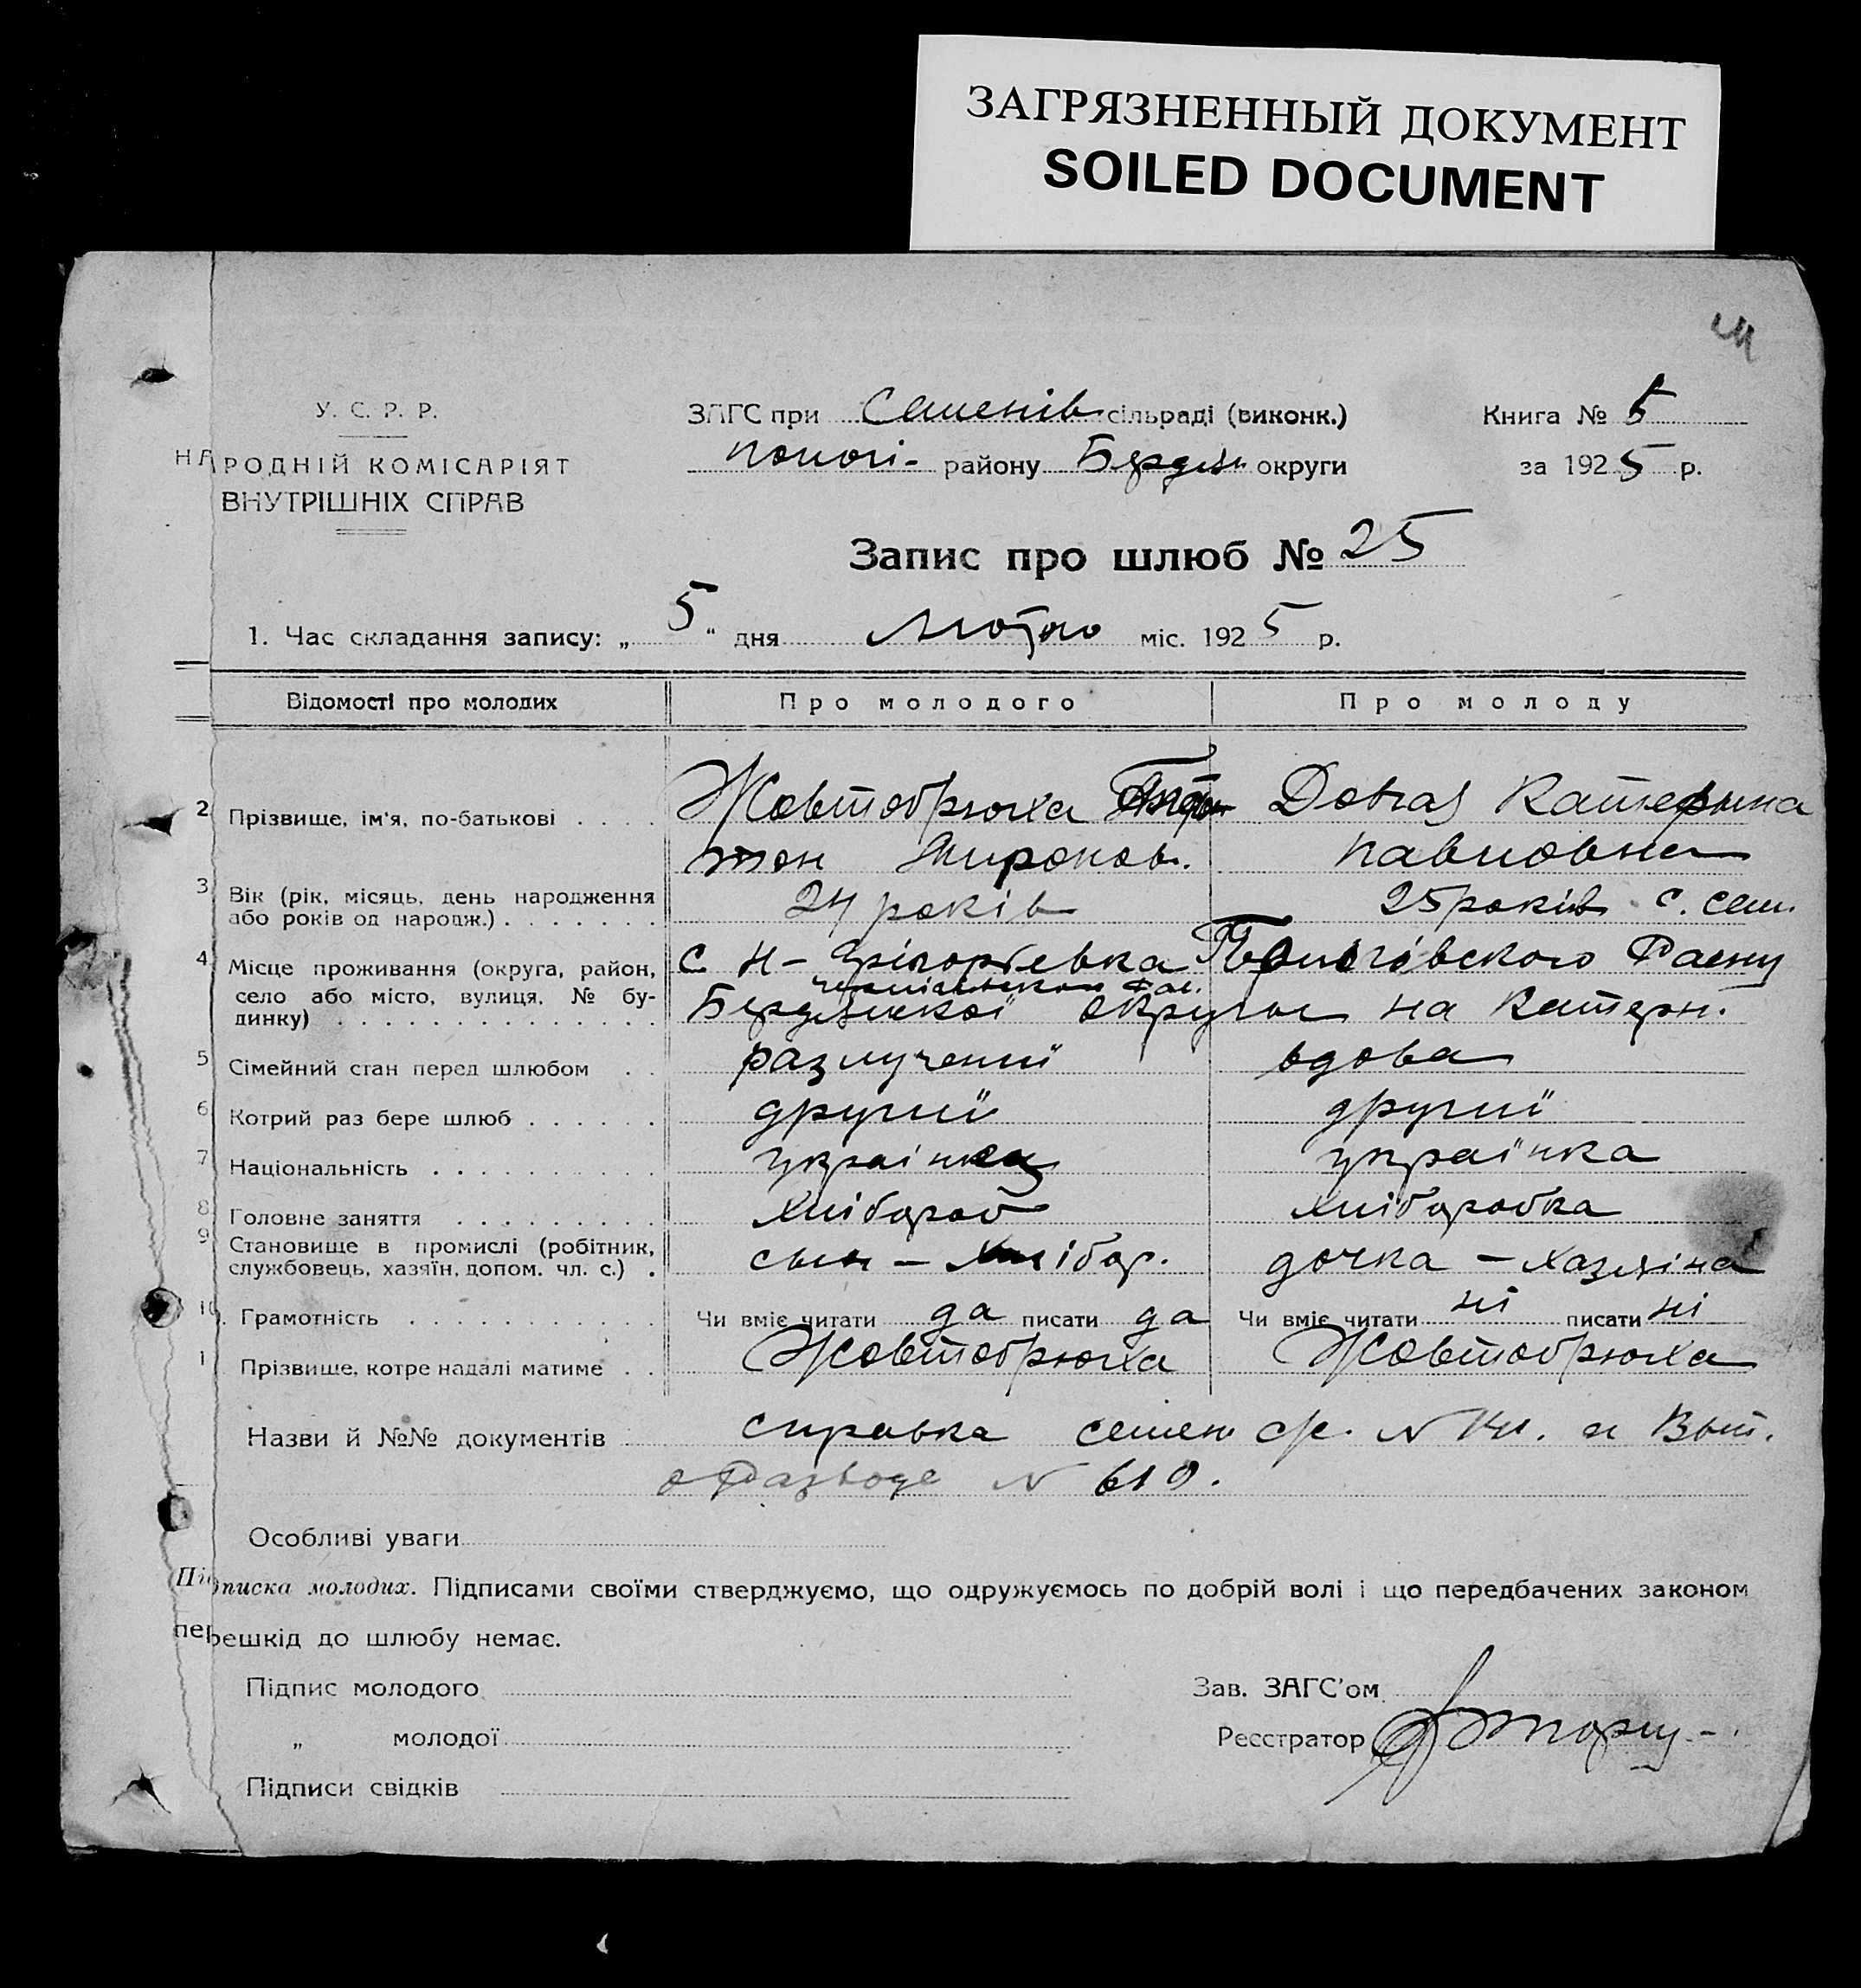 ЗАГРЯЗНЕННЫЙ ДОКУМЕНТ
SOILED DOCUMENT
У. С. Р. Р.
НАРОДНІЙ КОМІСАРІЯТ
ВНУТРІШНІХ СПРАВ
ЗАГС при Семенів сільраді (виконк.)
району Бердян округи
Книга № 5
за 1925 р.
Запис про шлюб № 25
1. Час складання запису: „5“ дня Лютого міс. 1925 р.
Відомості про молодих Про молодого Про молоду
2 Прізвище, ім'я, по-батькові . . . . Жовтобрюха Катерина
Миронов. Павловна
3 Вік (рік, місяць, день народження
або років од народж.) . . . . . . . 24 років 25 років с. Сем.
4 Місце проживання (округа, район, с Н-Грігорієвка Пологовского Раену
село або місто, вулиця, № бу-
динку) . . . . . . . . . . . . . . Бердянської округы на Катерн.
5 Сімейний стан перед шлюбом . . разлучений вдова
6 Котрий раз бере шлюб . . . . . . другий другий
7 Національність . . . . . . . . . українец українка
8 Головне заняття . . . . . . . . . Хлібороб хліборобка
9 Становище в промислі (робітник,
службовець, хазяїн, допом. чл. с.) . сын - Хлібор. дочка - хазяіна
10. Грамотність . . . . . . . . . . . Чи вміє читати да писати да Чи вміє читати ні писати ні
1 Прізвище, котре надалі матиме . . Жовтобрюха Жовтобрюха
Назви й №№ документів справка семен с/с. N и Вып.
о Разводе N 619.
Особливі уваги
Підписка молодих. Підписами своїми стверджуємо, що одружуємось по добрій волі і що передбачених законом
перешкід до шлюбу немає.
Підпис молодого
„ молодої
Підписи свідків
Зав. ЗАГС'ом
Реєстратор